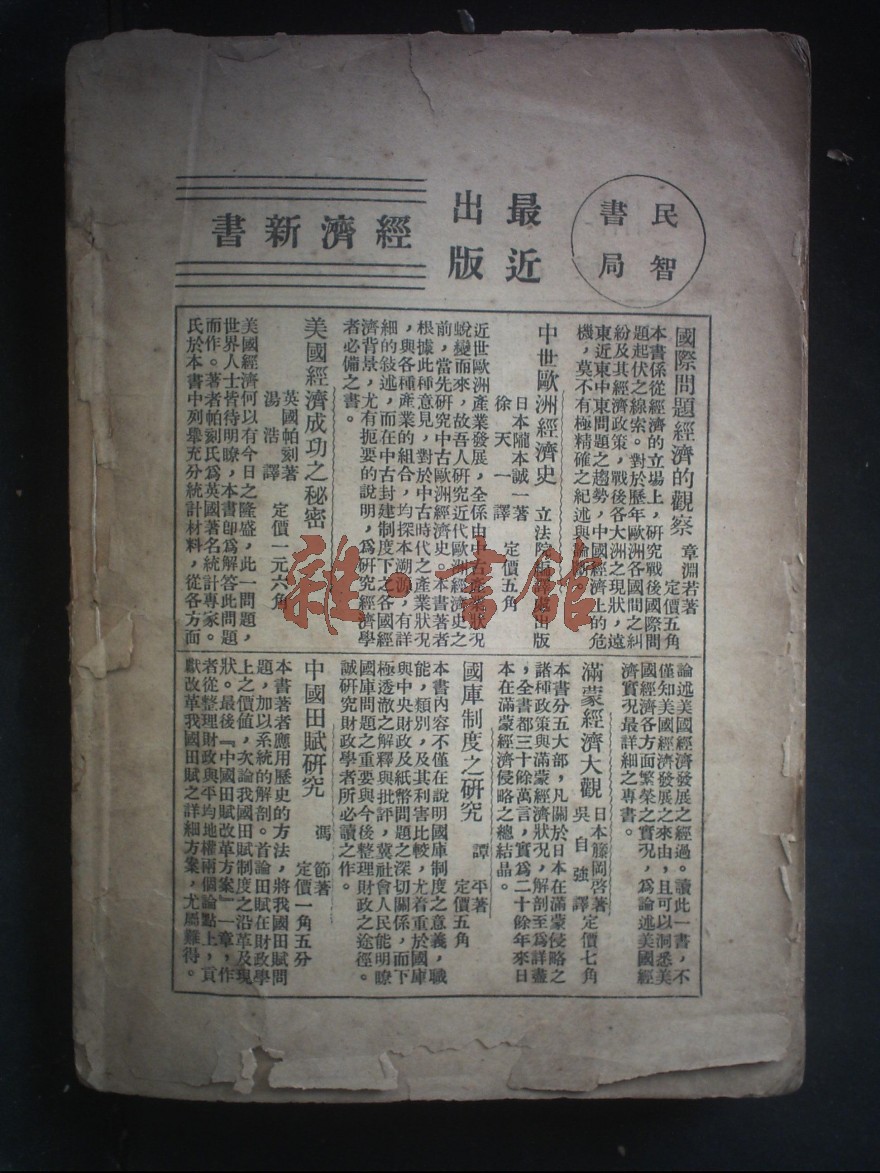 民智
書局
最近
出版
經濟新書
國際問題經濟的觀察 章淵若著
定價五角
本書係從經濟的立場上，研究戰後國際間
題起伏之線索。對於歷年歐洲各國間之糾
紛及其經濟政策，戰後各大洲之現狀，遠
東近東中東問題之趨勢，中國經濟上的危
機，莫不有極精確之紀述與論
中世歐洲經濟史 立法院編譯處出版
日本隴本誠一著
徐天一譯 定價五角
近世歐洲產業發展，全係由中古產業狀況
蛻變而來，故吾人研究近代歐洲經濟史之
前，當先研究中古歐洲經濟史。本書著者
根據此種意見，對於中古時代之產業狀況
，與各種產業的組合，均探本溯源，有詳
細的敘述，而在中古封建制度下之各國經
濟背景，尤有扼要的說明，爲研究經濟學
者必備之書。
美國經濟成功之秘密
英國帕刻著
湯浩譯 定價一元六角
美國經濟何以有今日之隆盛，此一問題，
世界人士皆待明瞭，本書卽爲解答此問題
而作。著者帕刻氏爲英國著名統計專家。
氏於本書中列舉充分統計材料，從各方面
論述美國經濟發展之經過。讀此一書，不
僅知美國經濟發展之來由，且可以洞悉美
國經濟各方面繁榮之實況，爲論述美國經
濟實況最詳細之專書。
滿蒙經濟大觀 日本籐岡啓著
吳自強譯 定價七角
本書分五大部，凡關於日本在滿蒙侵略之
諸種政策與滿蒙經濟狀況，解剖至爲詳盡
，全書都三十餘萬言，實爲二十餘年來日
本在滿蒙經濟侵略之總結晶。
國庫制度之研究 譚平著
定價五角
本書內容不僅在說明國庫制度之意義，職
能，類別，及其利害比較，尤着重於國庫
與中央財政及紙幣問題之深切關係，而下
極透澈之解釋與批評，冀社會人民能明瞭
國庫問題之重要與今後整理財政之途徑。
誠研究財政學者所必讀之作。
中國田賦研究 馮節著
定價一角五分
本書著者應用歷史的方法，將我國田賦問
題，加以系統的解剖。首論田賦在財政學
上之價値，次論我國田賦制度之沿革及現
狀。最後『中國田賦改革方案』一章，作
者從整理財政與平均地權兩個論點上，貢
獻改革我國田賦之詳細方案，尤屬難得。
雜·書館